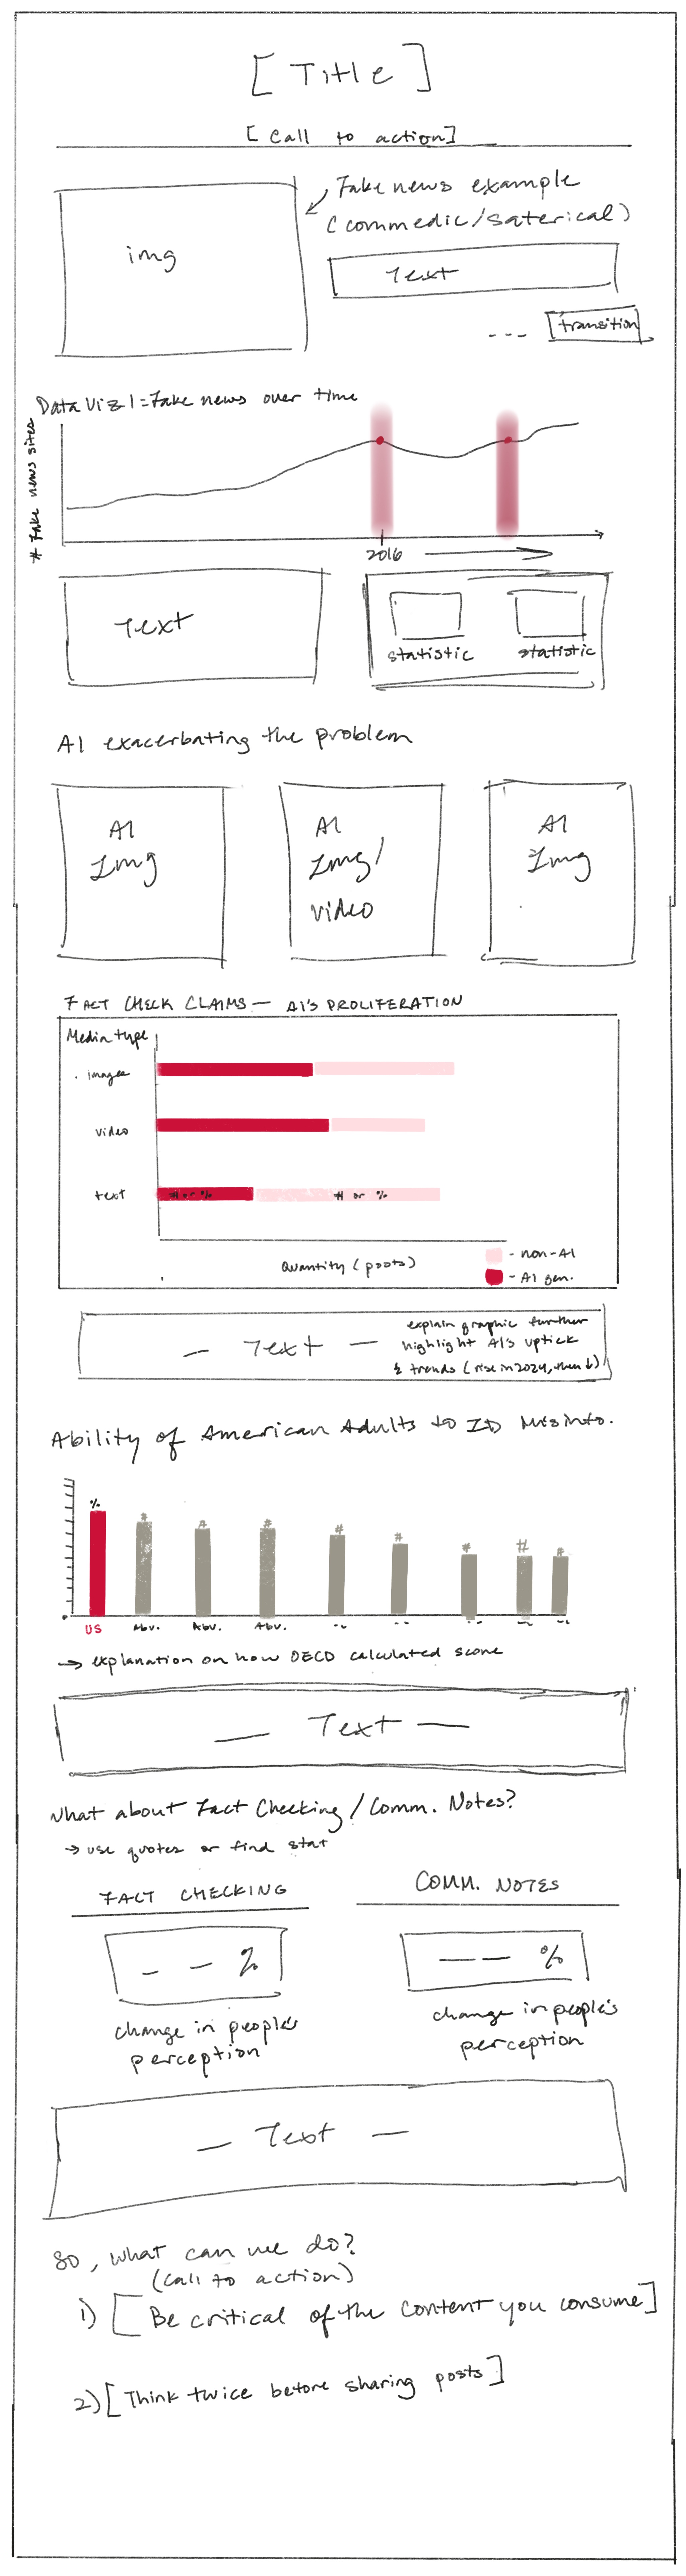 [ Title ]
[ Call to action ]
Fake news example
(commedic/saterical)
img
Text
--- [transition]
Data Viz 1 = Fake news over time
# Fake news sites
2016
Text
statistic
statistic
AI exacerbating the problem
AI
Img
AI
Img/
video
AI
Img
FACT CHECK CLAIMS — AI'S PROLIFERATION
Media type
images
video
text
# or %
# or %
Quantity (posts)
- non-AI
- AI gen.
— Text —
explain graphic further
highlight AI's uptick
& trends (rise in 2024, then ↓)
Ability of American Adults to ID Misinfo.
%
#
#
#
#
#
#
#
#
US
Abv.
Abv.
Abv.
--
--
--
--
--
→ explanation on how OECD calculated score
— Text —
What about Fact Checking / Comm. Notes?
→ use quotes or find stat
FACT CHECKING
COMM. NOTES
— — %
— — %
change in people's
perception
change in people's
perception
— Text —
So, what can we do?
(call to action)
1) [Be critical of the content you consume]
2) [Think twice before sharing posts]